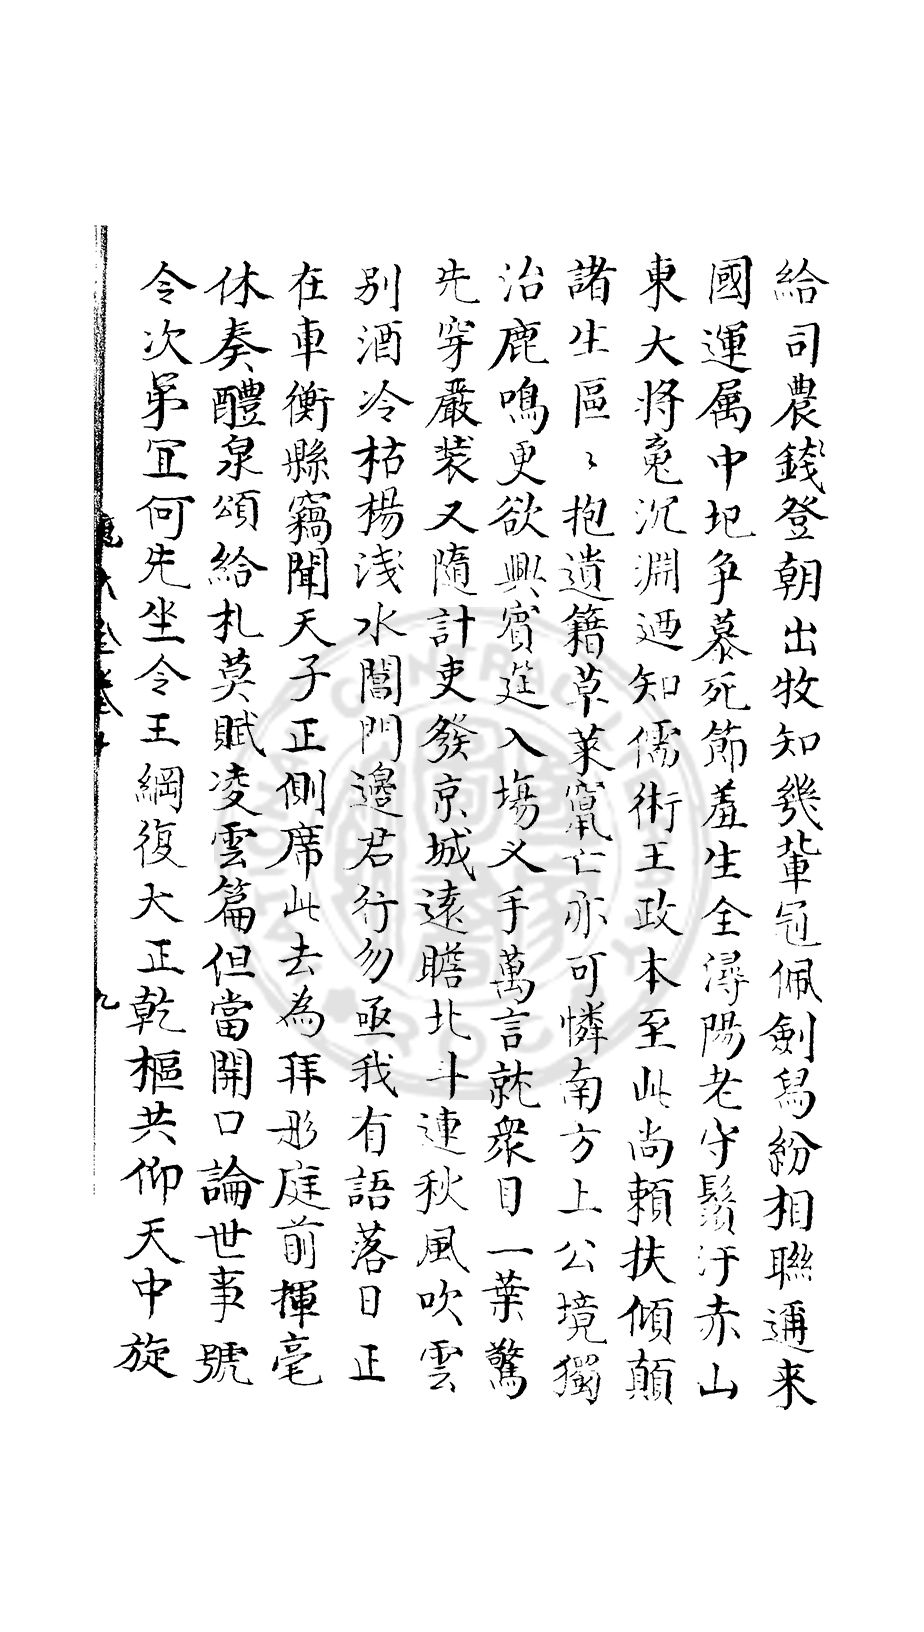 給司農錢登朝出牧知幾輩冠佩劍舄紛相聯邇来
國運属中圯争慕死節羞生全潯陽老守鬚汙赤山
東大將竟沉淵迺知儒術王政本至此尚賴扶傾顛
諸生區〻抱遺籍草萊竄亡亦可憐南方上公境獨
治鹿鳴更欲興賓筵入塲义手萬言就衆目一葉驚
先穿嚴装又隨計吏發京城遠瞻北斗連秋風吹雲
别酒冷枯楊淺水閶門邊君行勿亟我有語落日正
在車衡縣竊聞天子正側席此去為拜彤庭前揮毫
休奏醴泉頌給札莫賦凌雲篇但當開口論世事號
令次苐宜何先坐令王綱復大正乾樞共仰天中旋
九